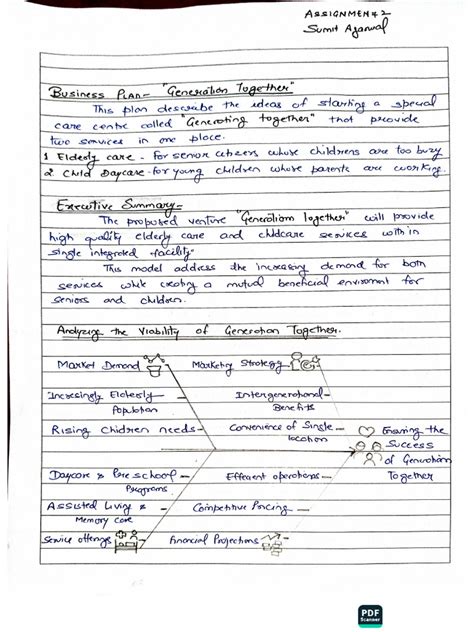 ASSIGNMENT 2
Sumit Agarwal
Business Plan- "Generation Together"
This plan describe the ideas of starting a special
care centre called "Generating together" that provide
two services in one place.
1 Elderly care - for senior citizens whose childrens are too busy
2 Child Daycare - for young children whose parents are working.
Executive Summary-
The proposed venture "Generation Together" will provide
high quality elderly care and childcare services within
single integrated facility.
This model address the increasing demand for both
services while creating a mutual beneficial enviroment for
seniors and children.
Analyzing the Viability of Generation Together.
Market Demand
Marketing Strategy
Increasingly Elderly
Population
Intergenerational
Benefits
Rising Children needs
Convenience of Single
location
Ensuring the
Success
of Generation
Together
Daycare & Preschool
Programs
Efficient operations
Assisted Living &
Memory care
Competitive Pricing
Service offerings
Financial Projections
PDF
Scanner